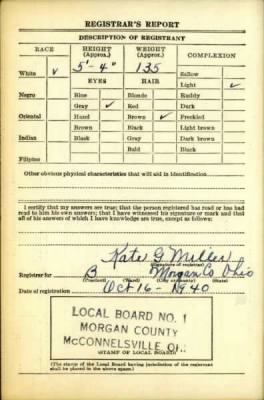 REGISTRAR'S REPORT
DESCRIPTION OF REGISTRANT
RACE HEIGHT (Approx.) WEIGHT (Approx.) COMPLEXION
White ✓ 5'-4" 135 Sallow
EYES HAIR Light ✓
Negro Blue Blonde Ruddy
Gray ✓ Red Dark
Oriental Hazel Brown ✓ Freckled
Brown Black Light brown
Indian Black Gray Dark brown
Bald Black
Filipino
Other obvious physical characteristics that will aid in identification
I certify that my answers are true; that the person registered has read or has had
read to him his own answers; that I have witnessed his signature or mark and that
all of his answers of which I have knowledge are true, except as follows:
Kate G Miller
(Signature of registrar)
Registrar for B Morgan Co Ohio
(Precinct) (Ward) (City or county) (State)
Date of registration Oct 16 - 1940
LOCAL BOARD NO. 1
MORGAN COUNTY
McCONNELSVILLE, O.
(STAMP OF LOCAL BOARD)
(The stamp of the Local Board having jurisdiction of the registrant
shall be placed in the above space.)